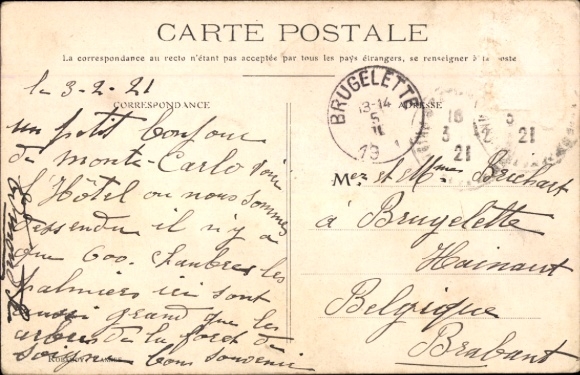 CARTE POSTALE
La correspondance au recto n'étant pas acceptée par tous les pays étrangers, se renseigner à la poste
le 3-2-21
CORRESPONDANCE
un petit bonjour
de monte-Carlo voici
l'Hôtel ou nous sommes
dessendu il n'y a
que 600. Chambres les
palmiers ici sont
aussi grand que les
arbres de la foret de
soigne bons souvenir
ADRESSE
BRUGELETTE
13-14
5
II
19
3 2 21
21
Mer et Mme Brichart
à Brugelette
Hainaut
Belgique
Brabant